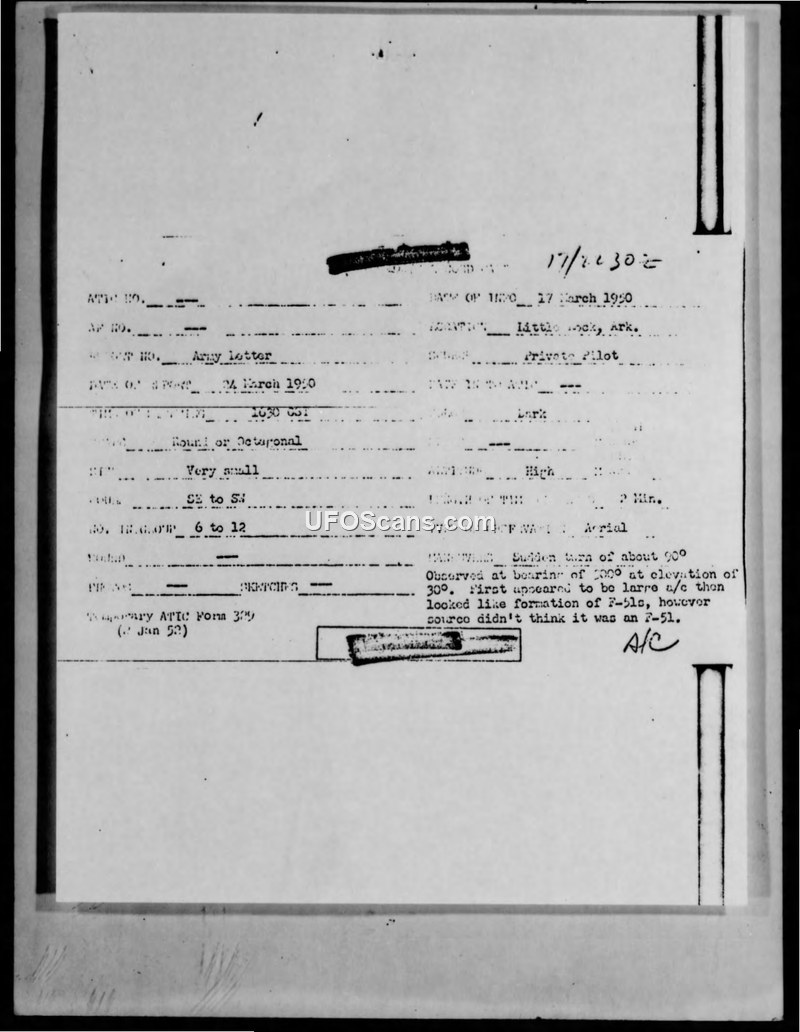 17/2230Z
ATIC NO. -- DATE OF INFO 17 March 1950
AF NO. -- LOCATION Little Rock, Ark.
REPORT NO. Army Letter SOURCE Private Pilot
DATE OF REPORT 24 March 1950 DATE IN TO ATIC --
TIME OF SIGHTING 1630 CST Dark
SHAPE Round or Octagonal --
SIZE Very small ALTITUDE High
COURSE SE to SW LENGTH OF TIME 2 Min.
NO. IN GROUP 6 to 12 TYPE OF OBSERVATION Aerial
SOUND -- MANEUVERS Sudden turn of about 90°
Observed at bearing of at elevation of
PHOTOS -- SKETCHES -- 30°. First appeared to be large a/c then
looked like formation of F-51s, however
Temporary ATIC Form 329 source didn't think it was an F-51.
(2 Jan 52)
A/C
UFOScans.com